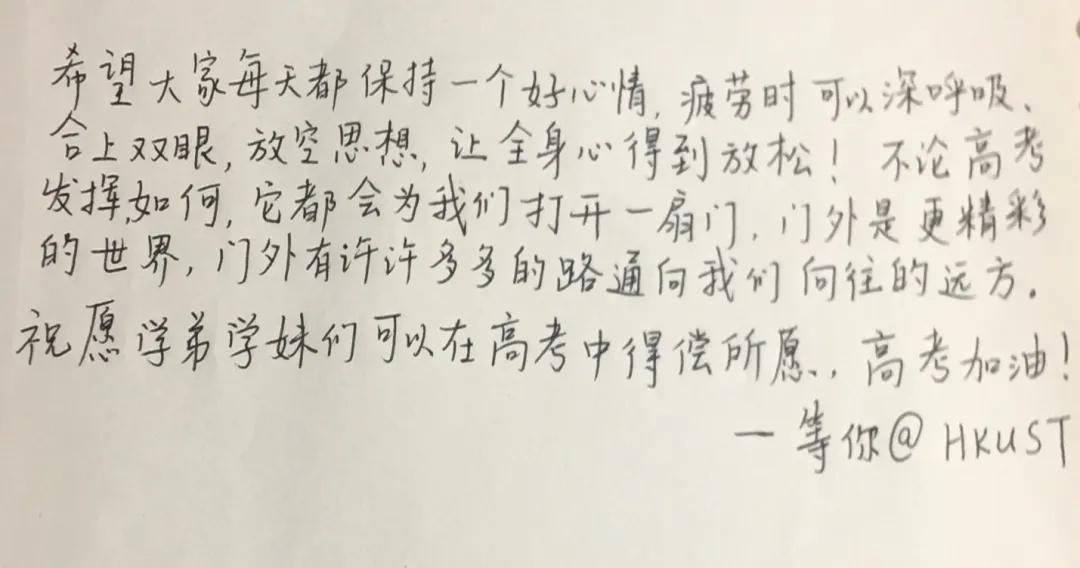 希望大家每天都保持一个好心情,疲劳时可以深呼吸、
合上双眼,放空思想,让全身心得到放松!不论高考
发挥如何,它都会为我们打开一扇门,门外是更精彩
的世界,门外有许许多多的路通向我们向往的远方。
祝愿学弟学妹们可以在高考中得偿所愿,高考加油!
—等你@HKUST